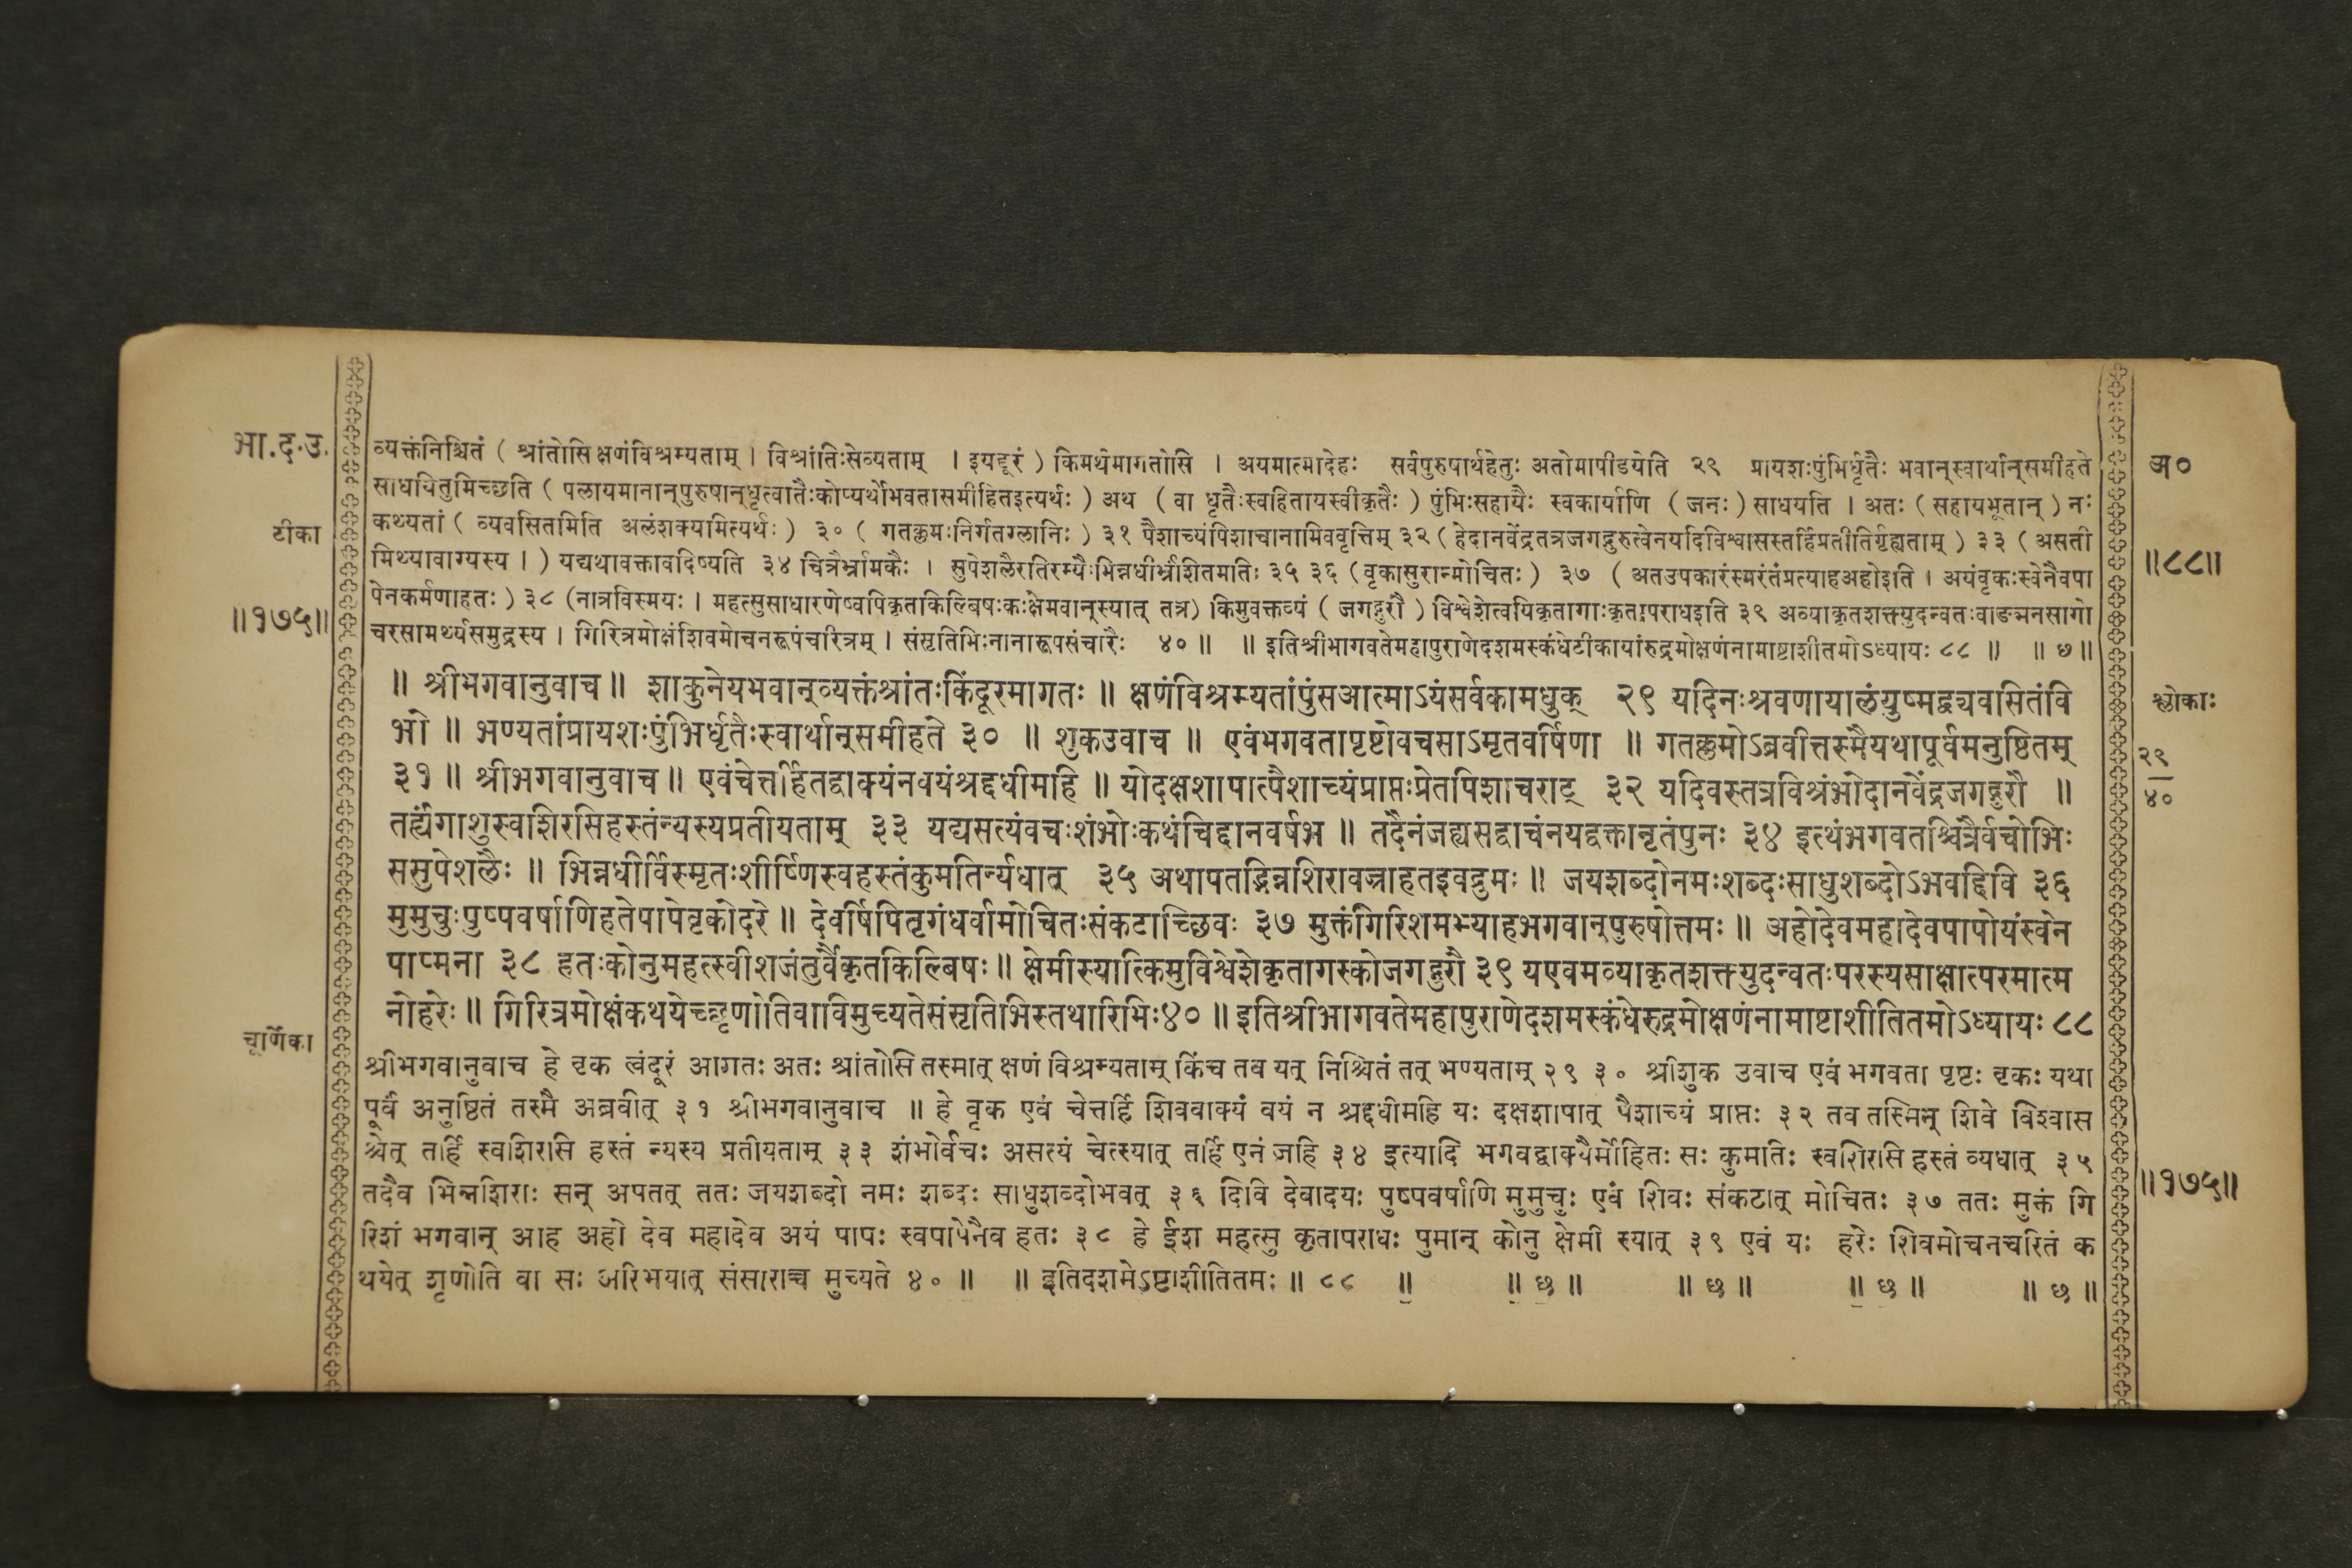 भा.द.उ.
व्यक्तंनिश्चितं ( श्रांतोसि क्षणंविश्रम्यताम् । विश्रांतिःसेव्यताम् । इयद्दूरं ) किमर्थमागतोसि । अयमात्मादेहः सर्वपुरुषार्थहेतुः अतोमापीडयेति २९ प्रायशःपुंभिर्धृतैः भवान्स्वार्थान्समीहते
अ०
साधयितुमिच्छति ( पलायमानान्पुरुषान्धृत्वातैःकोप्यर्थोभवतासमीहितइत्यर्थः ) अथ ( वा धृतैःस्वहितायस्वीकृतैः ) पुंभिःसहायैः स्वकार्याणि ( जनः ) साधयति । अतः ( सहायभूतान् ) नः
टीका
कथ्यतां ( व्यवसितमिति अलंशक्यामित्यर्थः ) ३० ( गतक्लमःनिर्गतग्लानिः ) ३१ पैशाच्यंपिशाचानामिववृत्तिम् ३२ ( हेदानवेंद्रतत्रजगद्गुरुत्वेनयदिविश्वासस्तर्हिप्रतीतिर्गृह्यताम् ) ३३ ( असती
मिथ्यावाग्यस्य । ) यद्यथावक्तावदिष्यति ३४ चित्रैर्भ्रामकैः । सुपेशलैरतिरम्यैःभिन्नधीर्भ्रंशितमतिः ३५ ३६ ( वृकासुरान्मोचितः ) ३७ ( अतउपकारंस्मरंतंप्रत्याहअहोइति । अयंवृकःस्वेनैवपा
॥८८॥
पेनकर्मणाहतः ) ३८ (नात्रविस्मयः । महत्सुसाधारणेष्वपिकृतकिल्बिषःकःक्षेमवान्स्यात् तत्र) किमुवक्तव्यं ( जगद्गुरौ ) विश्वेशेत्वयिकृतागाःकृतापराधइति ३९ अव्याकृतशक्त्युदन्वतःवाङ्मनसागो
॥१७५॥
चरसामर्थ्यसमुद्रस्य । गिरित्रमोक्षंशिवमोचनरूपंचरित्रम् । संसृतिभिःनानारूपसंचारैः ४० ॥ ॥ इतिश्रीभागवतेमहापुराणेदशमस्कंधेटीकायांरुद्रमोक्षणंनामाष्टाशीतमोऽध्यायः ८८ ॥ ॥ छ ॥
॥ श्रीभगवानुवाच ॥ शाकुनेयभवान्व्यक्तंश्रांतःकिंदूरमागतः ॥ क्षणंविश्रम्यतांपुंसआत्माऽयंसर्वकामधुक् २९ यदिनःश्रवणायालंयुष्मद्व्यवसितंवि
श्लोकाः
भो ॥ भण्यतांप्रायशःपुंभिर्धृतैःस्वार्थान्समीहते ३० ॥ शुकउवाच ॥ एवंभगवतापृष्टोवचसाऽमृतवर्षिणा ॥ गतक्लमोऽब्रवीत्तस्मैयथापूर्वमनुष्ठितम्
३१ ॥ श्रीभगवानुवाच ॥ एवंचेत्तर्हितद्वाक्यंनवयंश्रद्दधीमहि ॥ योदक्षशापात्पैशाच्यंप्राप्तःप्रेतपिशाचराट् ३२ यदिवस्तत्रविश्रंभोदानवेंद्रजगद्गुरौ ॥
२९
४०
तर्ह्यंगाशुस्वशिरसिहस्तंन्यस्यप्रतीयताम् ३३ यद्यसत्यंवचःशंभोःकथंचिद्दानवर्षभ ॥ तदैनंजह्यसद्वाचंनयद्वक्तानृतंपुनः ३४ इत्थंभगवतश्चित्रैर्वचोभिः
ससुपेशलैः ॥ भिन्नधीर्विस्मृतःशीर्ष्णिस्वहस्तंकुमतिर्न्यधात् ३५ अथापतद्भिन्नशिरावज्राहतइवद्रुमः ॥ जयशब्दोनमःशब्दःसाधुशब्दोऽभवद्दिवि ३६
मुमुचुःपुष्पवर्षाणिहतेपापेवृकोदरे ॥ देवर्षिपितृगंधर्वामोचितःसंकटाच्छिवः ३७ मुक्तंगिरिशमभ्याहभगवान्पुरुषोत्तमः ॥ अहोदेवमहादेवपापोयंस्वेन
पाप्मना ३८ हतःकोनुमहत्स्वीशजंतुर्वैकृतकिल्बिषः ॥ क्षेमीस्यात्किमुविश्वेशेकृतागस्कोजगद्गुरौ ३९ यएवमव्याकृतशक्त्युदन्वतःपरस्यसाक्षात्परमात्म
नोहरेः ॥ गिरित्रमोक्षंकथयेच्छृणोतिवाविमुच्यतेसंसृतिभिस्तथारिभिः४० ॥ इतिश्रीभागवतेमहापुराणेदशमस्कंधेरुद्रमोक्षणंनामाष्टाशीतितमोऽध्यायः ८८
चूर्णिका
श्रीभगवानुवाच हे वृक त्वंदूरं आगतः अतः श्रांतोसि तस्मात् क्षणं विश्रम्यताम् किंच तव यत् निश्चितं तत् भण्यताम् २९ ३० श्रीशुक उवाच एवं भगवता पृष्टः वृकः यथा
पूर्वं अनुष्ठितं तस्मै अब्रवीत् ३१ श्रीभगवानुवाच ॥ हे वृक एवं चेत्तर्हि शिववाक्यं वयं न श्रद्दधीमहि यः दक्षशापात् पैशाच्यं प्राप्तः ३२ तव तस्मिन् शिवे विश्वास
श्चेत् तर्हि स्वशिरसि हस्तं न्यस्य प्रतीयताम् ३३ शंभोर्वचः असत्यं चेत्स्यात् तर्हि एनं जहि ३४ इत्यादि भगवद्वाक्यैर्मोहितः सः कुमतिः स्वशिरसि हस्तं व्यधात् ३५
तदैव भिन्नशिराः सन् अपतत् ततः जयशब्दो नमः शब्दः साधुशब्दोभवत् ३६ दिवि देवादयः पुष्पवर्षाणि मुमुचुः एवं शिवः संकटात् मोचितः ३७ ततः मुक्तं गि
॥१७५॥
रिशं भगवान् आह अहो देव महादेव अयं पापः स्वपापेनैव हतः ३८ हे ईश महत्सु कृतापराधः पुमान् कोनु क्षेमी स्यात् ३९ एवं यः हरेः शिवमोचनचरितं क
थयेत् शृणोति वा सः अरिभयात् संसाराच्च मुच्यते ४० ॥ ॥ इतिदशमेऽष्टाशीतितमः ॥ ८८ ॥ ॥ छ ॥ ॥ छ ॥ ॥ छ ॥ ॥ छ ॥